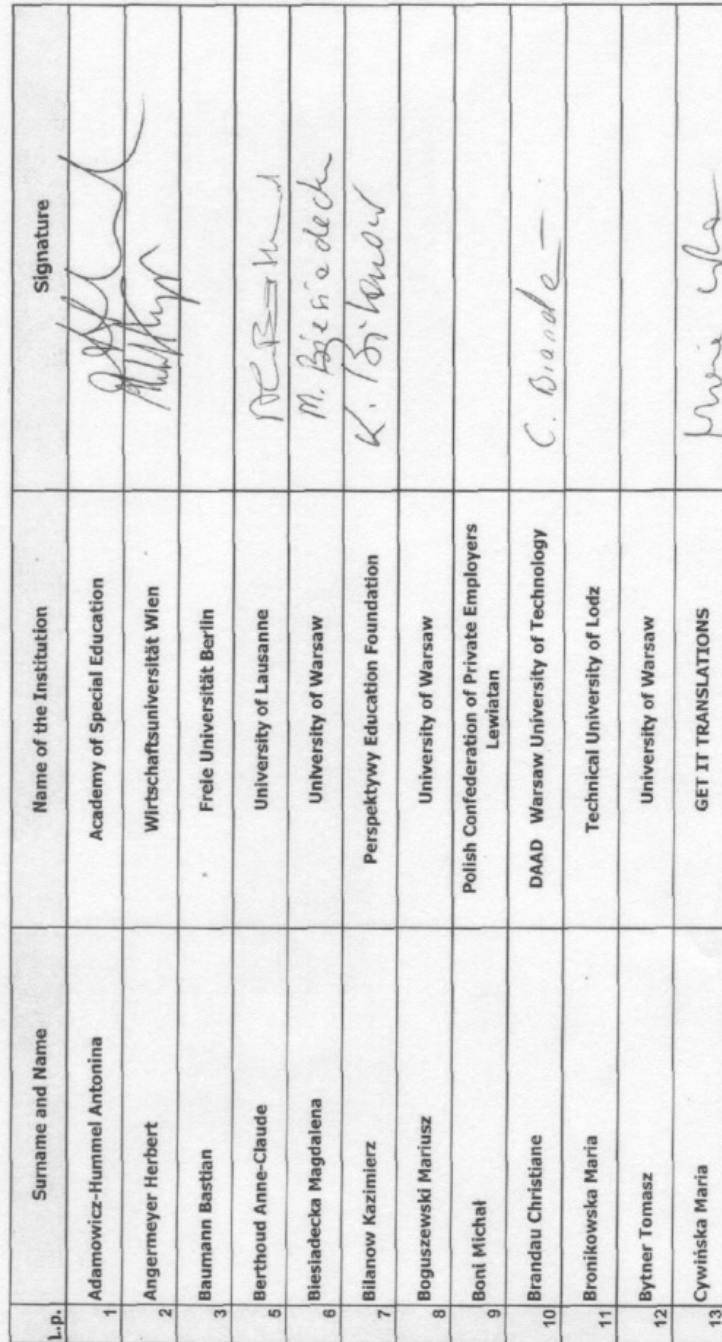 L.p. Surname and Name Name of the Institution Signature
1 Adamowicz-Hummel Antonina Academy of Special Education
2 Angermeyer Herbert Wirtschaftsuniversität Wien
3 Baumann Bastian Freie Universität Berlin
5 Berthoud Anne-Claude University of Lausanne
6 Biesiadecka Magdalena University of Warsaw M. Biesiadecka
7 Bilanow Kazimierz Perspektywy Education Foundation K. Bilanow
8 Boguszewski Mariusz University of Warsaw
9 Boni Michał Polish Confederation of Private Employers
Lewiatan
10 Brandau Christiane DAAD Warsaw University of Technology C. Branda
11 Bronikowska Maria Technical University of Lodz
12 Bytner Tomasz University of Warsaw
13 Cywińska Maria GET IT TRANSLATIONS